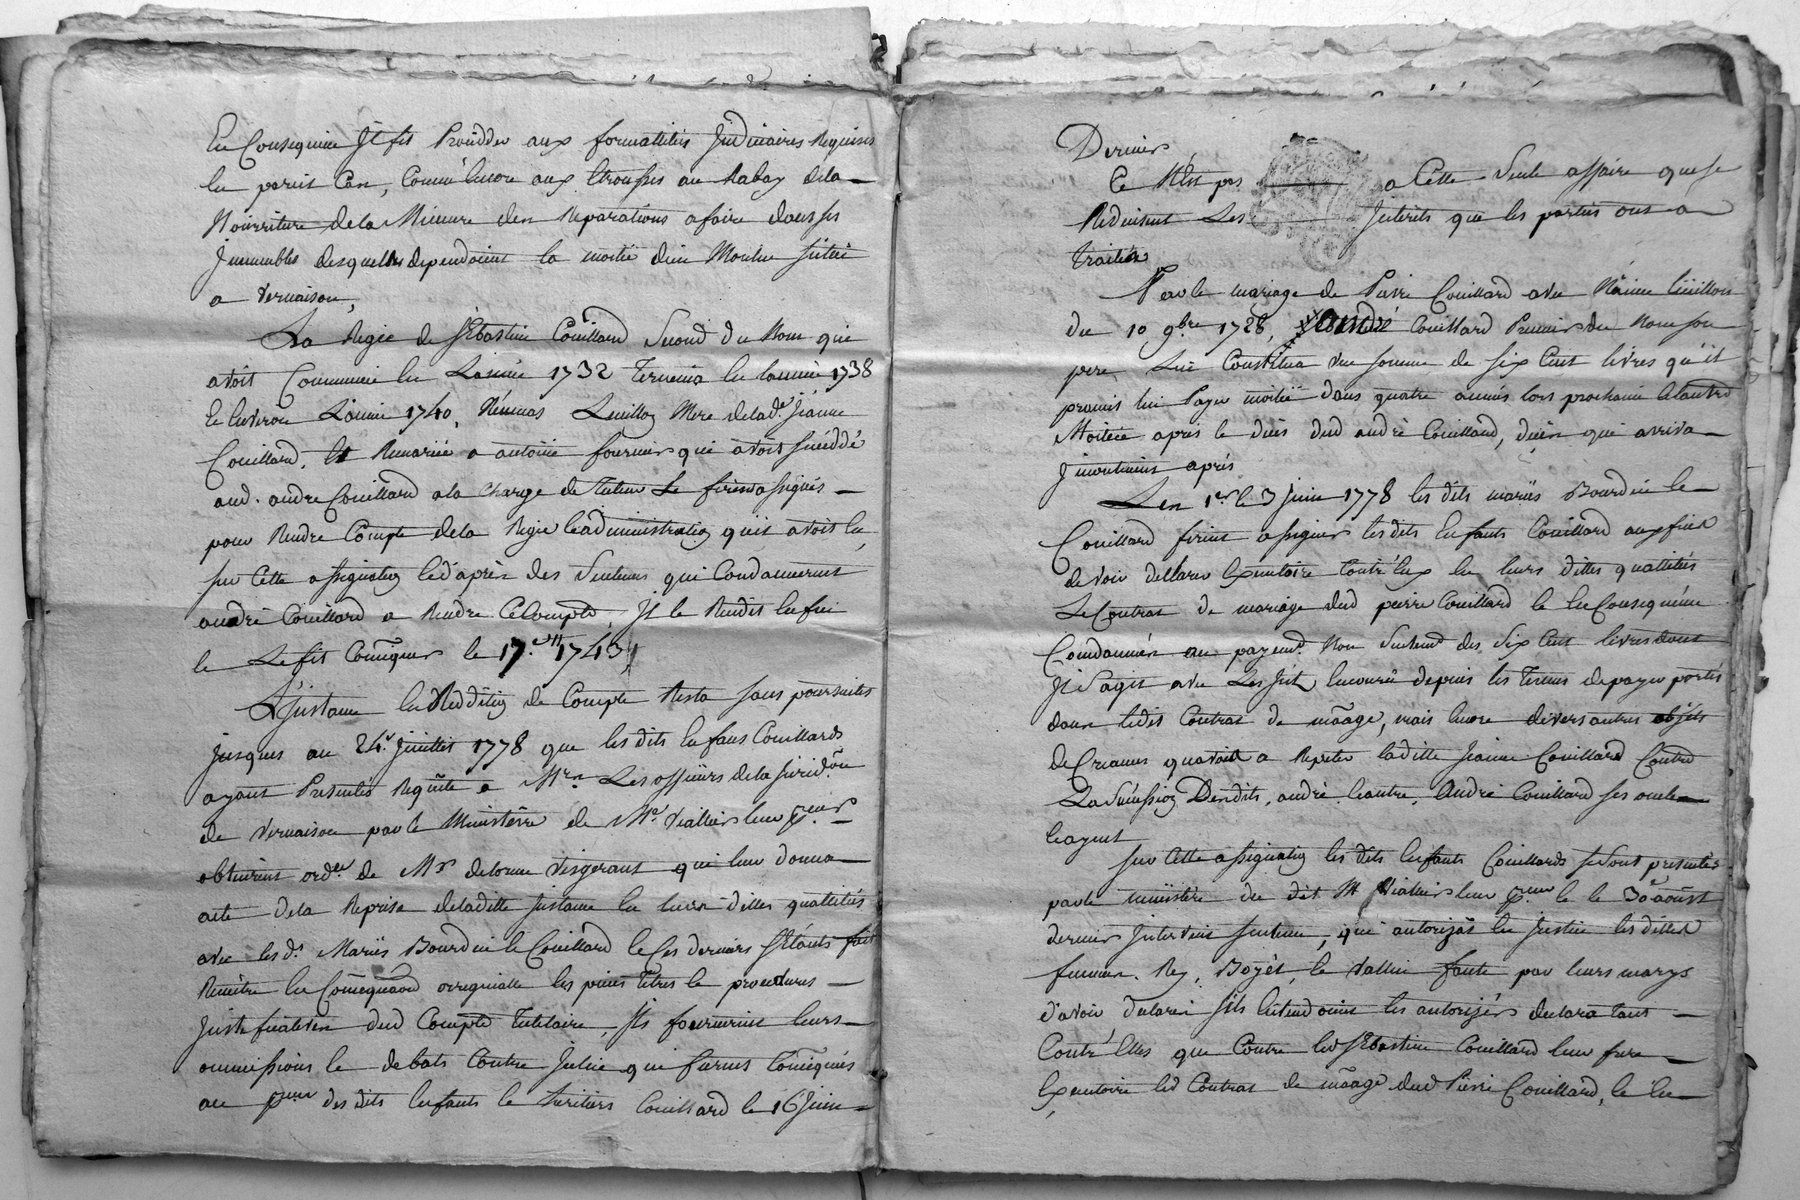 En Consequence Il fit Procédder aux formallités Judiciaires Requises
en pareil Cas, Comme encore aux trousses au Rabay dela
Nourriture dela Mineure des Reparations afaire dans ses
Immeubles desquelles dependoient la moitié d'un Moulin situé
a Vernaison,
La Regie de Sébastien Couillard Second du Nom qui
avoit Commencé en Lannée 1732 Termina en lannée 1738
Et Environ L'année 1740, Lucilloz Mere delad.e Jeanne
Couillard, Et Remariée a antoine fournier qui avoit succéddé
aud. andre Couillard ala Charge de Tuteur Le firent assigner
pour Rendre Compte dela Regie Et administration quil avoit Eu
sur Cette assignation Et d'après des Sentences qui Condamnerent
andré Couillard a Rendre Ce Compte, Il le Rendit Enfin
Et Le fit Coniquer le 17. 1743,
L'Instance En Reddition de Compte Resta sans poursuites
jusques au 24. Juillet 1778 que les dits Enfans Couillards
ayant Presentés Requête a Mrs. Les officiers dela Juridon
de Vernaison par le Ministère de Me. Viallier leur pcur
obtinrent orde de Mr delorme Visgerant qui leur donna
acte dela Reprise deladitte Instance En leurs dittes quallités
avec les ds. Mariés Bourdin Et Couillard Et Ces derniers s'Etants fait
Remettre En originalle les pièces Titres Et procedures
Justificatives dud Compte Tutelaire, Ils fournirent leurs
ommissions Et debats Contre Icelui qui furent Coniqués
au pcur des dits Enfants Et heritiers Couillard le 16 Juin
Dernier
Ce N'Est pas a Cette Seule affaire que se
Reduisent Les Interets que les parties ont a
Traiter
Par le mariage de Pierre Couillard avec
du 10 9bre 1728, andré Couillard Premier du Nom son
pere Lui Constitua une somme de six Cent livres qu'il
promit lui Payer moitié dans quatre années lors prochaine Et lautre
Moitiée après le décès dud andré Couillard, décès qui arriva
après
Les 1er Et 3 Juin 1778 les dits mariés Bourdin Et
Couillard firent assigner les dits Enfants Couillard aux fins
de voir dellarer Exécutoire Contr'Eux En leurs dittes quallités
Le Contrat de mariage dud pierre Couillard Et En Consequence
Condamnés au payemt. Non Seulemt des Six Cent livres dont
Il S'agit avec Les Int. Encourus depuis les Termes de payer portés
dans ledit Contrat de māage, mais Encore divers autres objets
de Créances quavait a Repeter ladite Jeanne Couillard Contre
La Succession Desdits, andré Et autre, André Couillard ses oncle
Et ayeul
Sur Cette assignation les dits Enfants Couillards se sont presentés
par le ministère du dit M Viallier leur pcur Et le 30 aoust
dernier Intervint Sentence, qui autorizas En Justice les dittes
femmes. Rey, Boyet, Et Vallin faute par leurs marys
d'avoir declaré s'ils Entendoient les autorizér declara tant
Contr'Elles que Contre led Sébastien Couillard leur frere
Exécutoire led Contrat de māage dud Pierre Couillard, Et En